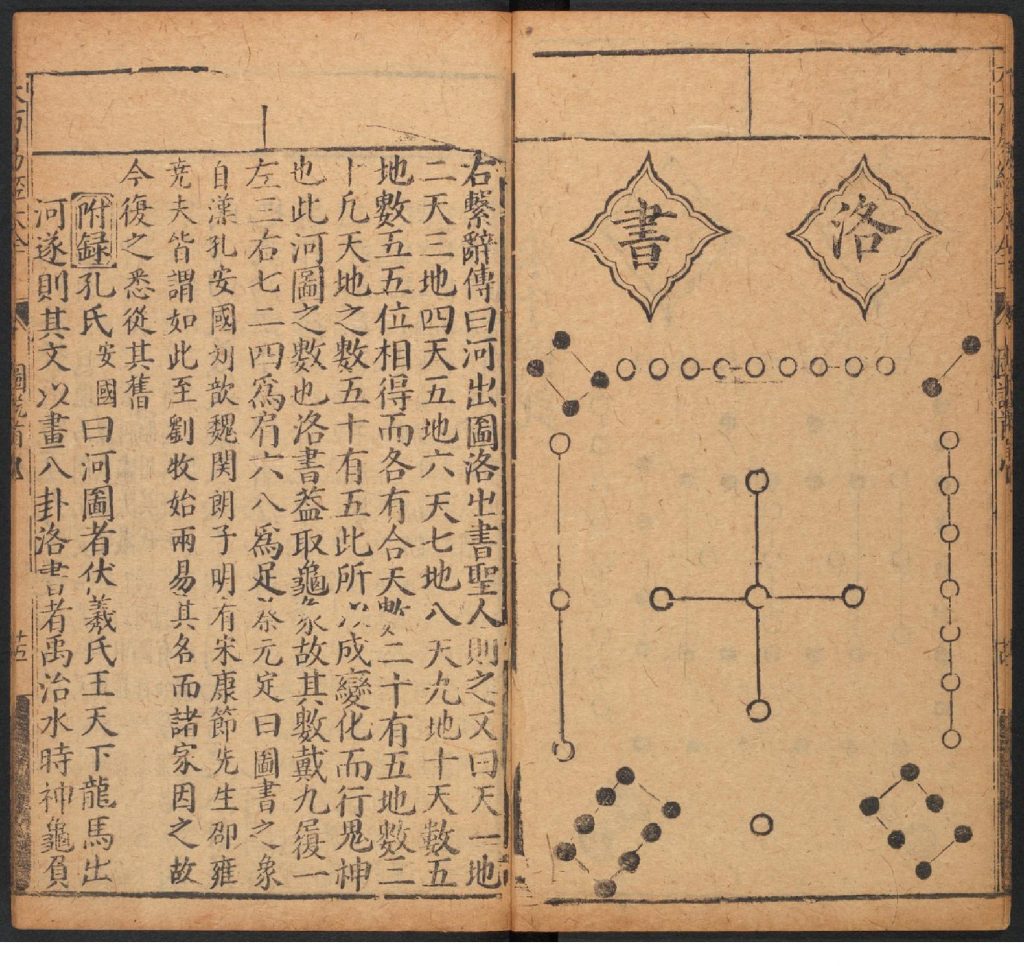 洛
書
右繫辭傳曰河出圖洛出書聖人則之又曰天一地
二天三地四天五地六天七地八天九地十天數五
地數五五位相得而各有合天數二十有五地數三
十凡天地之數五十有五此所以成變化而行鬼神
也此河圖之數也洛書蓋取龜象故其數戴九履一
左三右七二四為肩六八為足蔡元定曰圖書之象
自漢孔安國刘歆魏関朗子明有宋康節先生邵雍
尭夫皆謂如此至劉牧始兩易其名而諸家因之故
今復之悉從其舊
附録孔氏安國曰河圖者伏羲氏王天下龍馬出
河遂則其文以畫八卦洛書者禹治水時神龜負